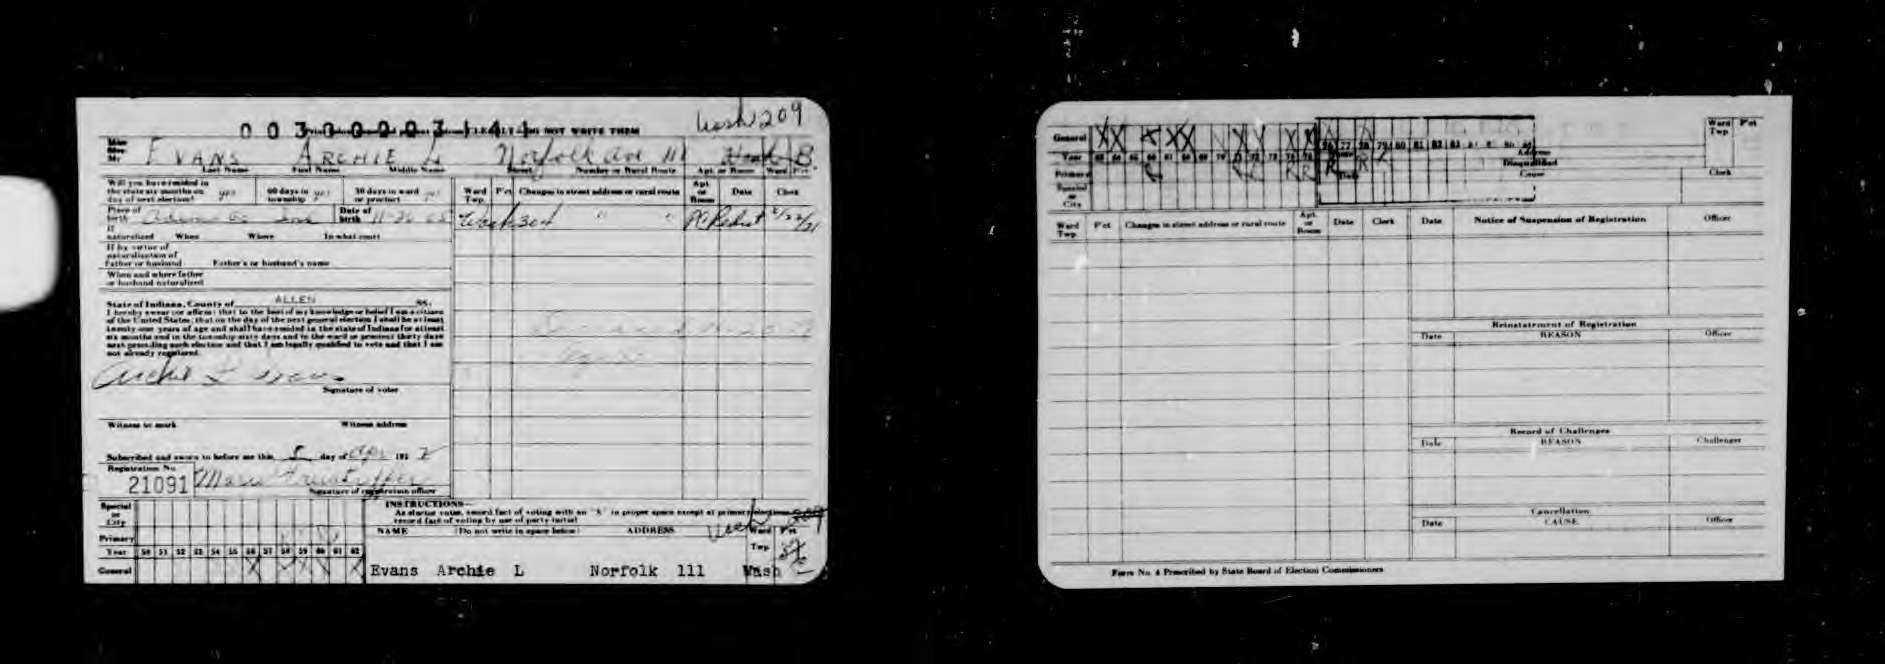 Wash 209
00300003141
Miss
Mrs.
Mr. EVANS ARCHIE L Norfolk Ave 111 B
Last Name First Name Middle Name Street Number or Rural Route Apt. or Room Ward P'ct
Will you have resided in the state six months on day of next election? yes 60 days in township yes 30 days in ward or precinct
Ward Twp. P'ct Changes in street address or rural route Apt. or Room Date Clerk
Place of birth Adams Co Ind Date of birth 11-26
Wash 304 " "
If naturalized When Where In what court
If by virtue of naturalization of Father or husband Father's or husband's name
When and where father or husband naturalized
State of Indiana, County of ALLEN ss.
I hereby swear (or affirm) that to the best of my knowledge or belief I am a citizen
of the United States; that on the day of the next general election I shall be at least
twenty-one years of age and shall have resided in the state of Indiana for at least
six months and in the township sixty days and in the ward or precinct thirty days
next preceding such election and that I am legally qualified to vote and that I am
not already registered.
Archie L Evans
Signature of voter
Witness to mark Witness address
Subscribed and sworn to before me this 5 day of Apr 195
Registration No.
21091 Marie
Signature of registration officer
Special or City
Primary
Year 50 51 52 53 54 55 56 57 58 59 60 61 62
General X X X X X
INSTRUCTIONS—
As elector votes, record fact of voting with an "X" in proper space except at primary elections
record fact of voting by use of party initial
NAME (Do not write in space below) ADDRESS Wash Ward Twp. P'ct
Evans Archie L Norfolk 111 Wash
General
Year 63 64 65 66 67 68 69 70 71 72 73 74 75
76 77 78 79 80 81 82 83
Primary R R R R
Special or City
Address
Disqualified
Cause Clerk
Ward Twp P'ct
Ward Twp. P'ct Changes in street address or rural route Apt. or Room Date Clerk Date Notice of Suspension of Registration Officer
Reinstatement of Registration
Date REASON Officer
Record of Challenges
Date REASON Challenger
Cancellation
Date CAUSE Officer
Form No. 4 Prescribed by State Board of Election Commissioners